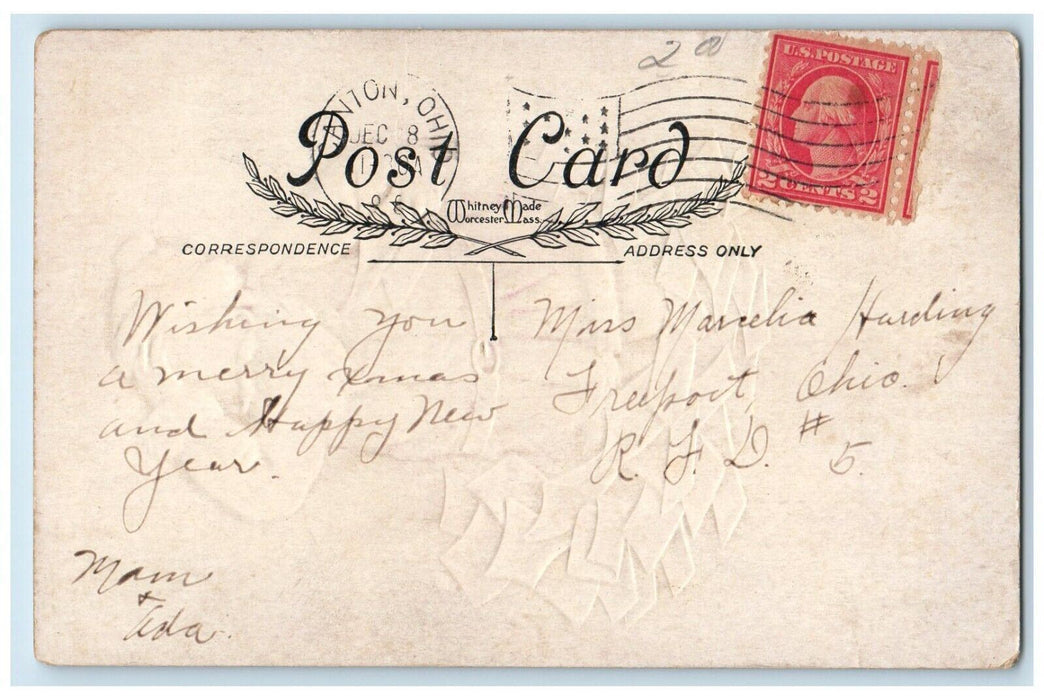 U.S. POSTAGE
2 CENTS 2
NTON, OHIO
DEC 8
Post Card
Whitney Made
Worcester Mass.
CORRESPONDENCE
ADDRESS ONLY
Wishing you
a merry xmas
and Happy New
Year.
Mam
+
Ada.
Miss Marcelia Harding
Freeport Ohio.
R. F. D. # 5.